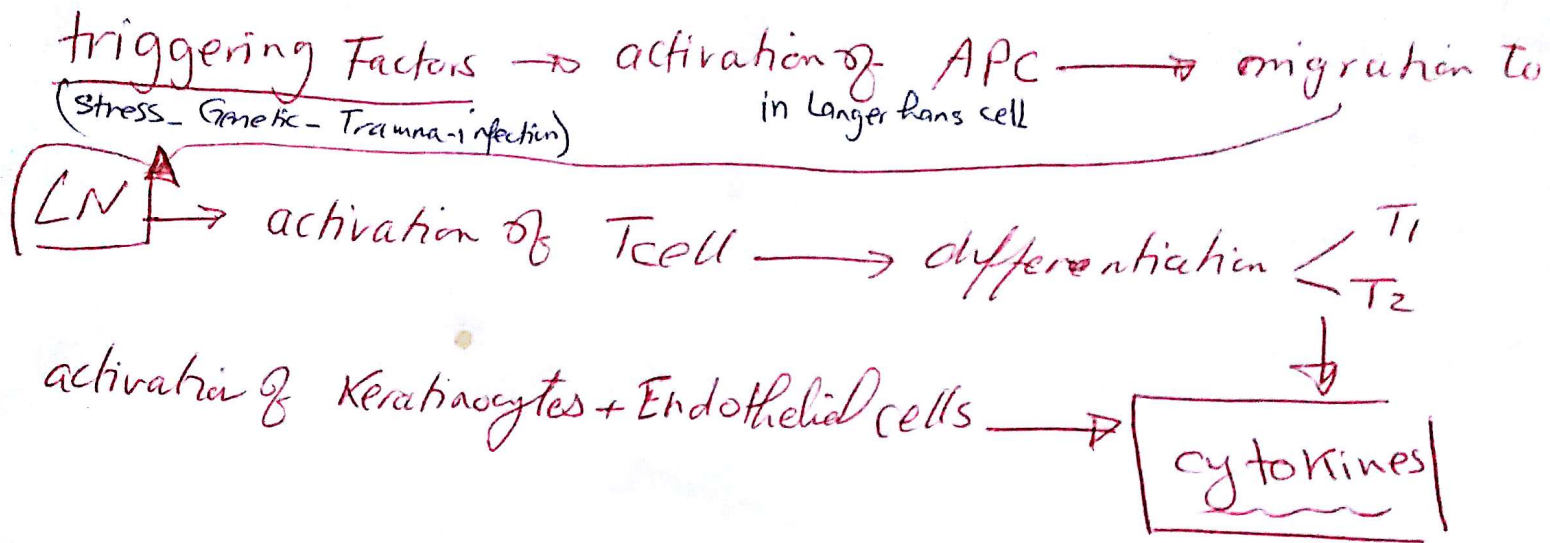 triggering Factors → activation of APC → migration to
(Stress - Genetic - Trauma - infection) in Langerhans cell
LN → activation of Tcell → differentiation < T1
T2
activation of Keratinocytes + Endothelial cells → cytokines